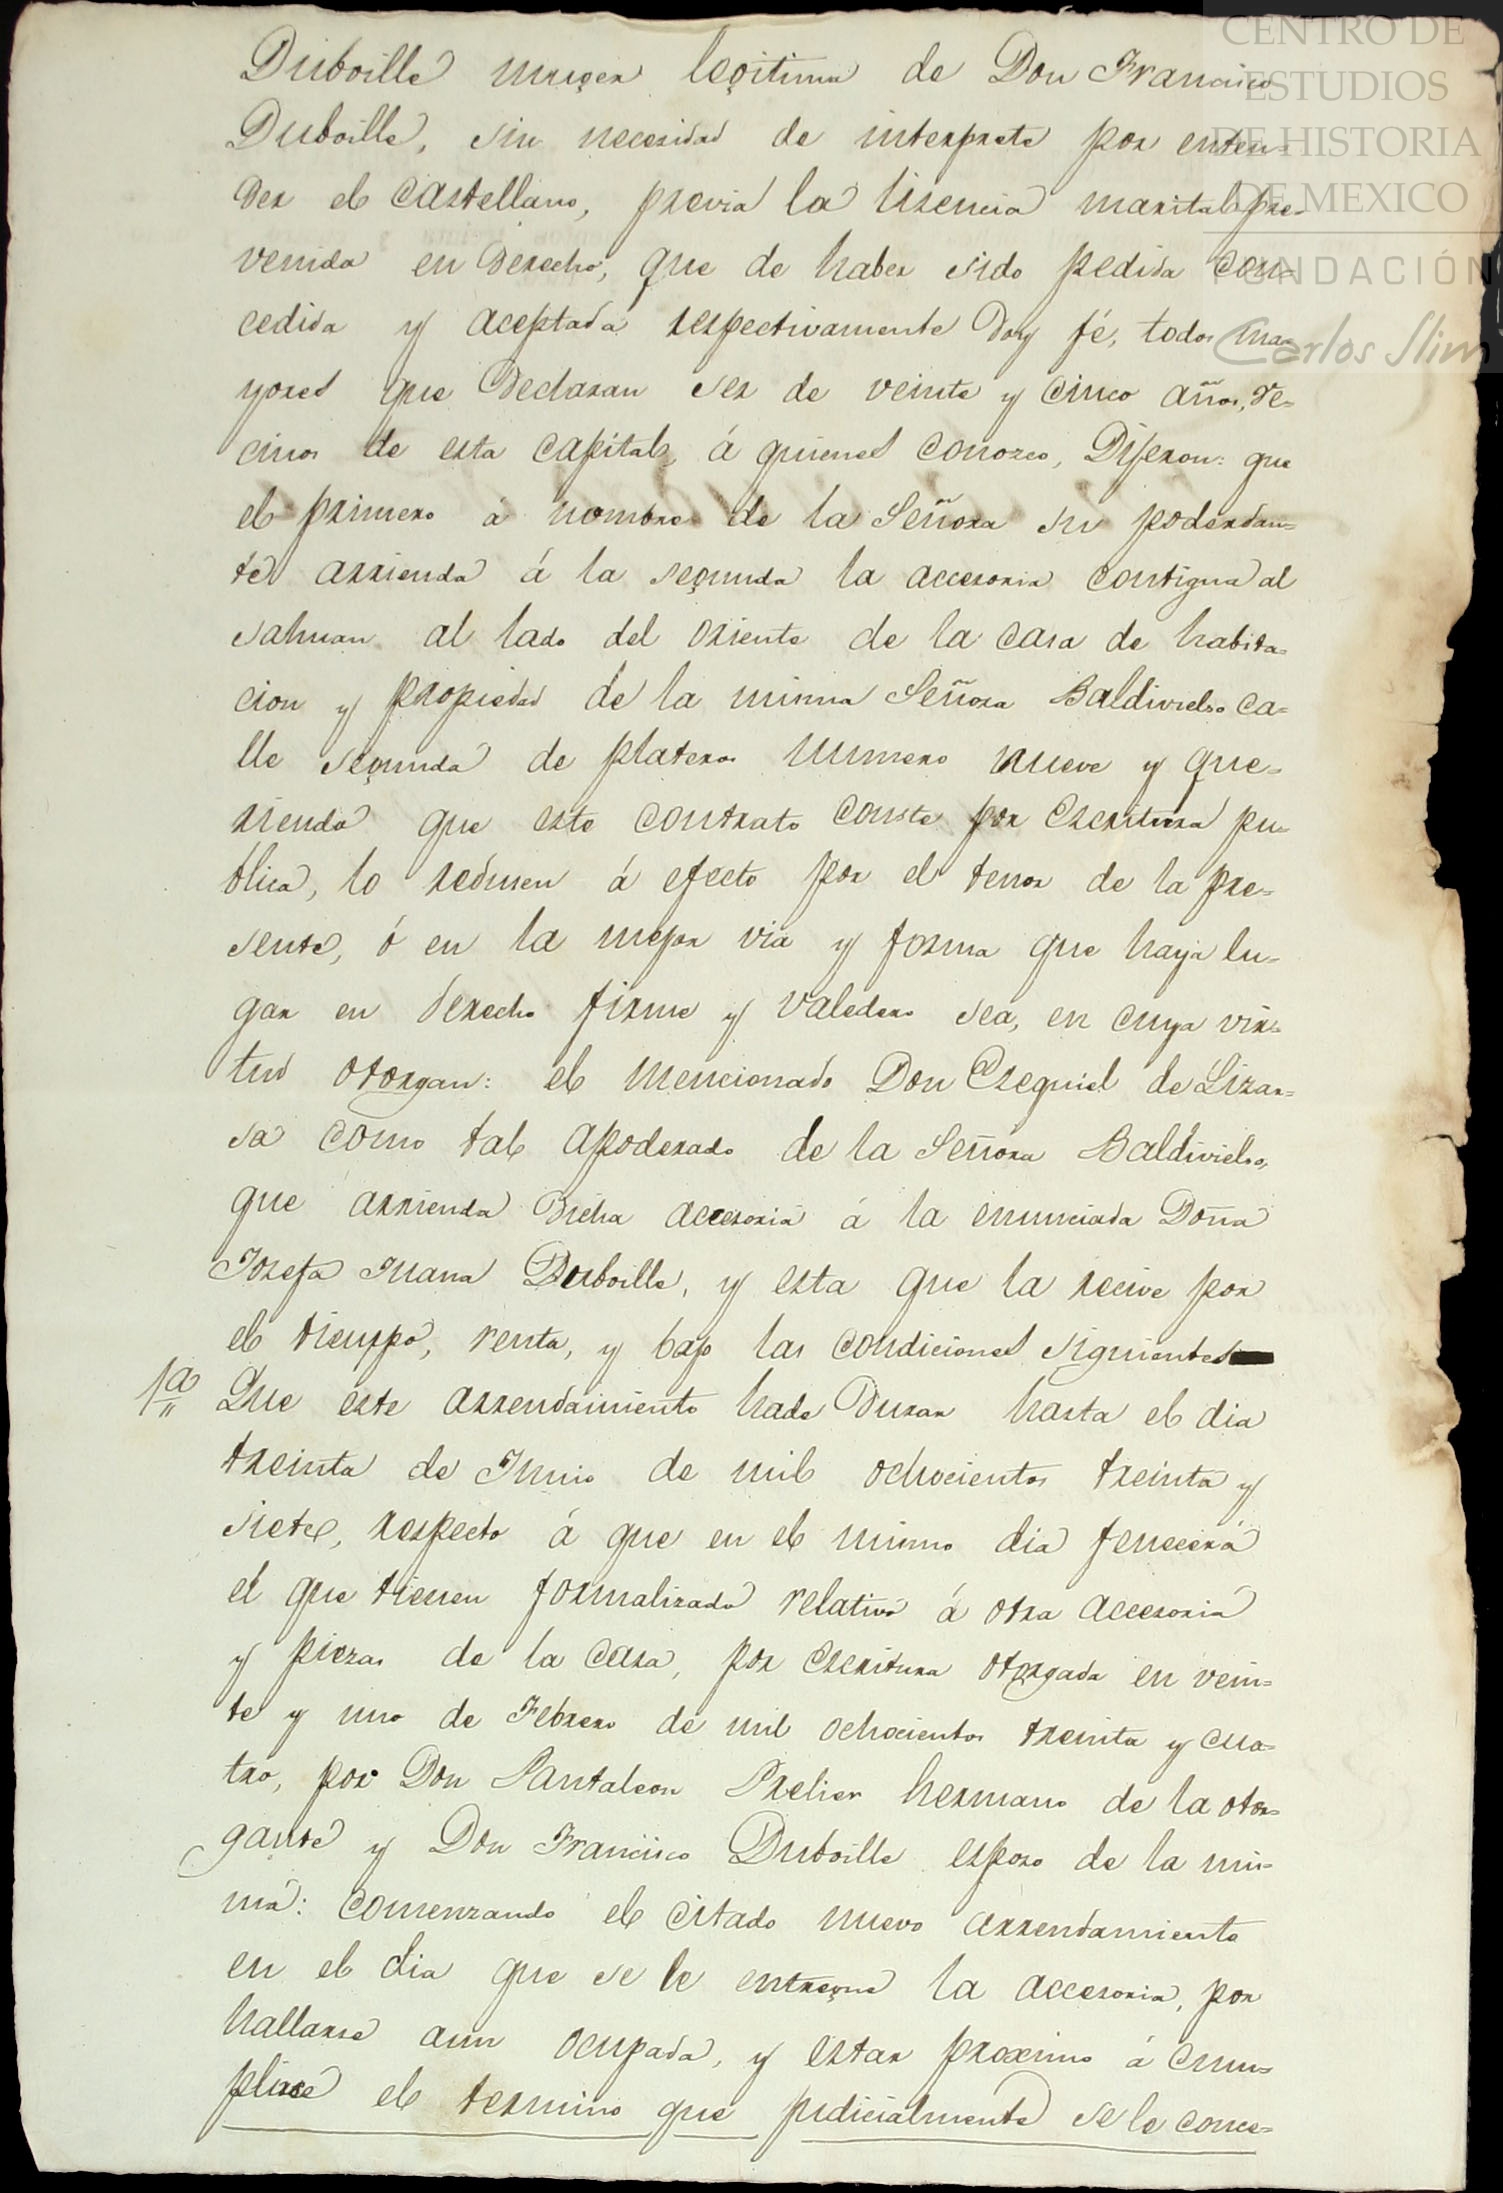 CENTRO DE
ESTUDIOS
DE HISTORIA
DE MEXICO
FUNDACIÓN
Carlos Slim
Duboille muger legitima de Don Francisco
Duboille, sin necesidad de interprete por enten-
der el castellano, previa la lisencia marital pre-
venida en derecho, que de haber sido pedida con-
cedida y aceptada respectivamente doy fé, todos ma-
yores que declaran ser de veinte y cinco años, ve-
cinos de esta capital, á quienes conozco, Dijeron: que
el primero á nombre de la Señora su poderdan-
te arrienda á la segunda la accesoria contigua al
sahuan al lado del oriente de la casa de habita-
cion y propiedad de la misma Señora Baldivielso ca-
lle segunda de plateros numero nueve y que-
riendo que este contrato conste por escritura pu-
blica, lo redusen á efecto por el tenor de la pre-
sente, ó en la mejor via y forma que haya lu-
gar en derecho firme y valedero sea, en cuya vir-
tud otorgan: el mencionado Don Ezequiel de Lizar-
sa como tal apoderado de la Señora Baldivielso,
que arrienda dicha accesoria á la enunciada Doña
Josefa Juana Duboille, y esta que la recive por
el tiempo, renta, y bajo las condiciones siguientes
1a Que este arrendamiento hade durar hasta el dia
treinta de Junio de mil ochocientos treinta y
siete, respecto á que en el mismo dia fenecerá
el que tienen formalizado relativo á otra accesoria
y piezas de la casa, por escritura otorgada en vein-
te y uno de Febrero de mil ochocientos treinta y cua-
tro, por Don Pantaleon Prelier hermano de la otor-
gante y Don Francisco Duboille esposo de la mis-
ma: comenzando el citado nuevo arrendamiento
en el dia que se le entregue la accesoria, por
hallarse aun ocupada, y estar proximo á cum-
plirse el termino que judicialmente se le conce-